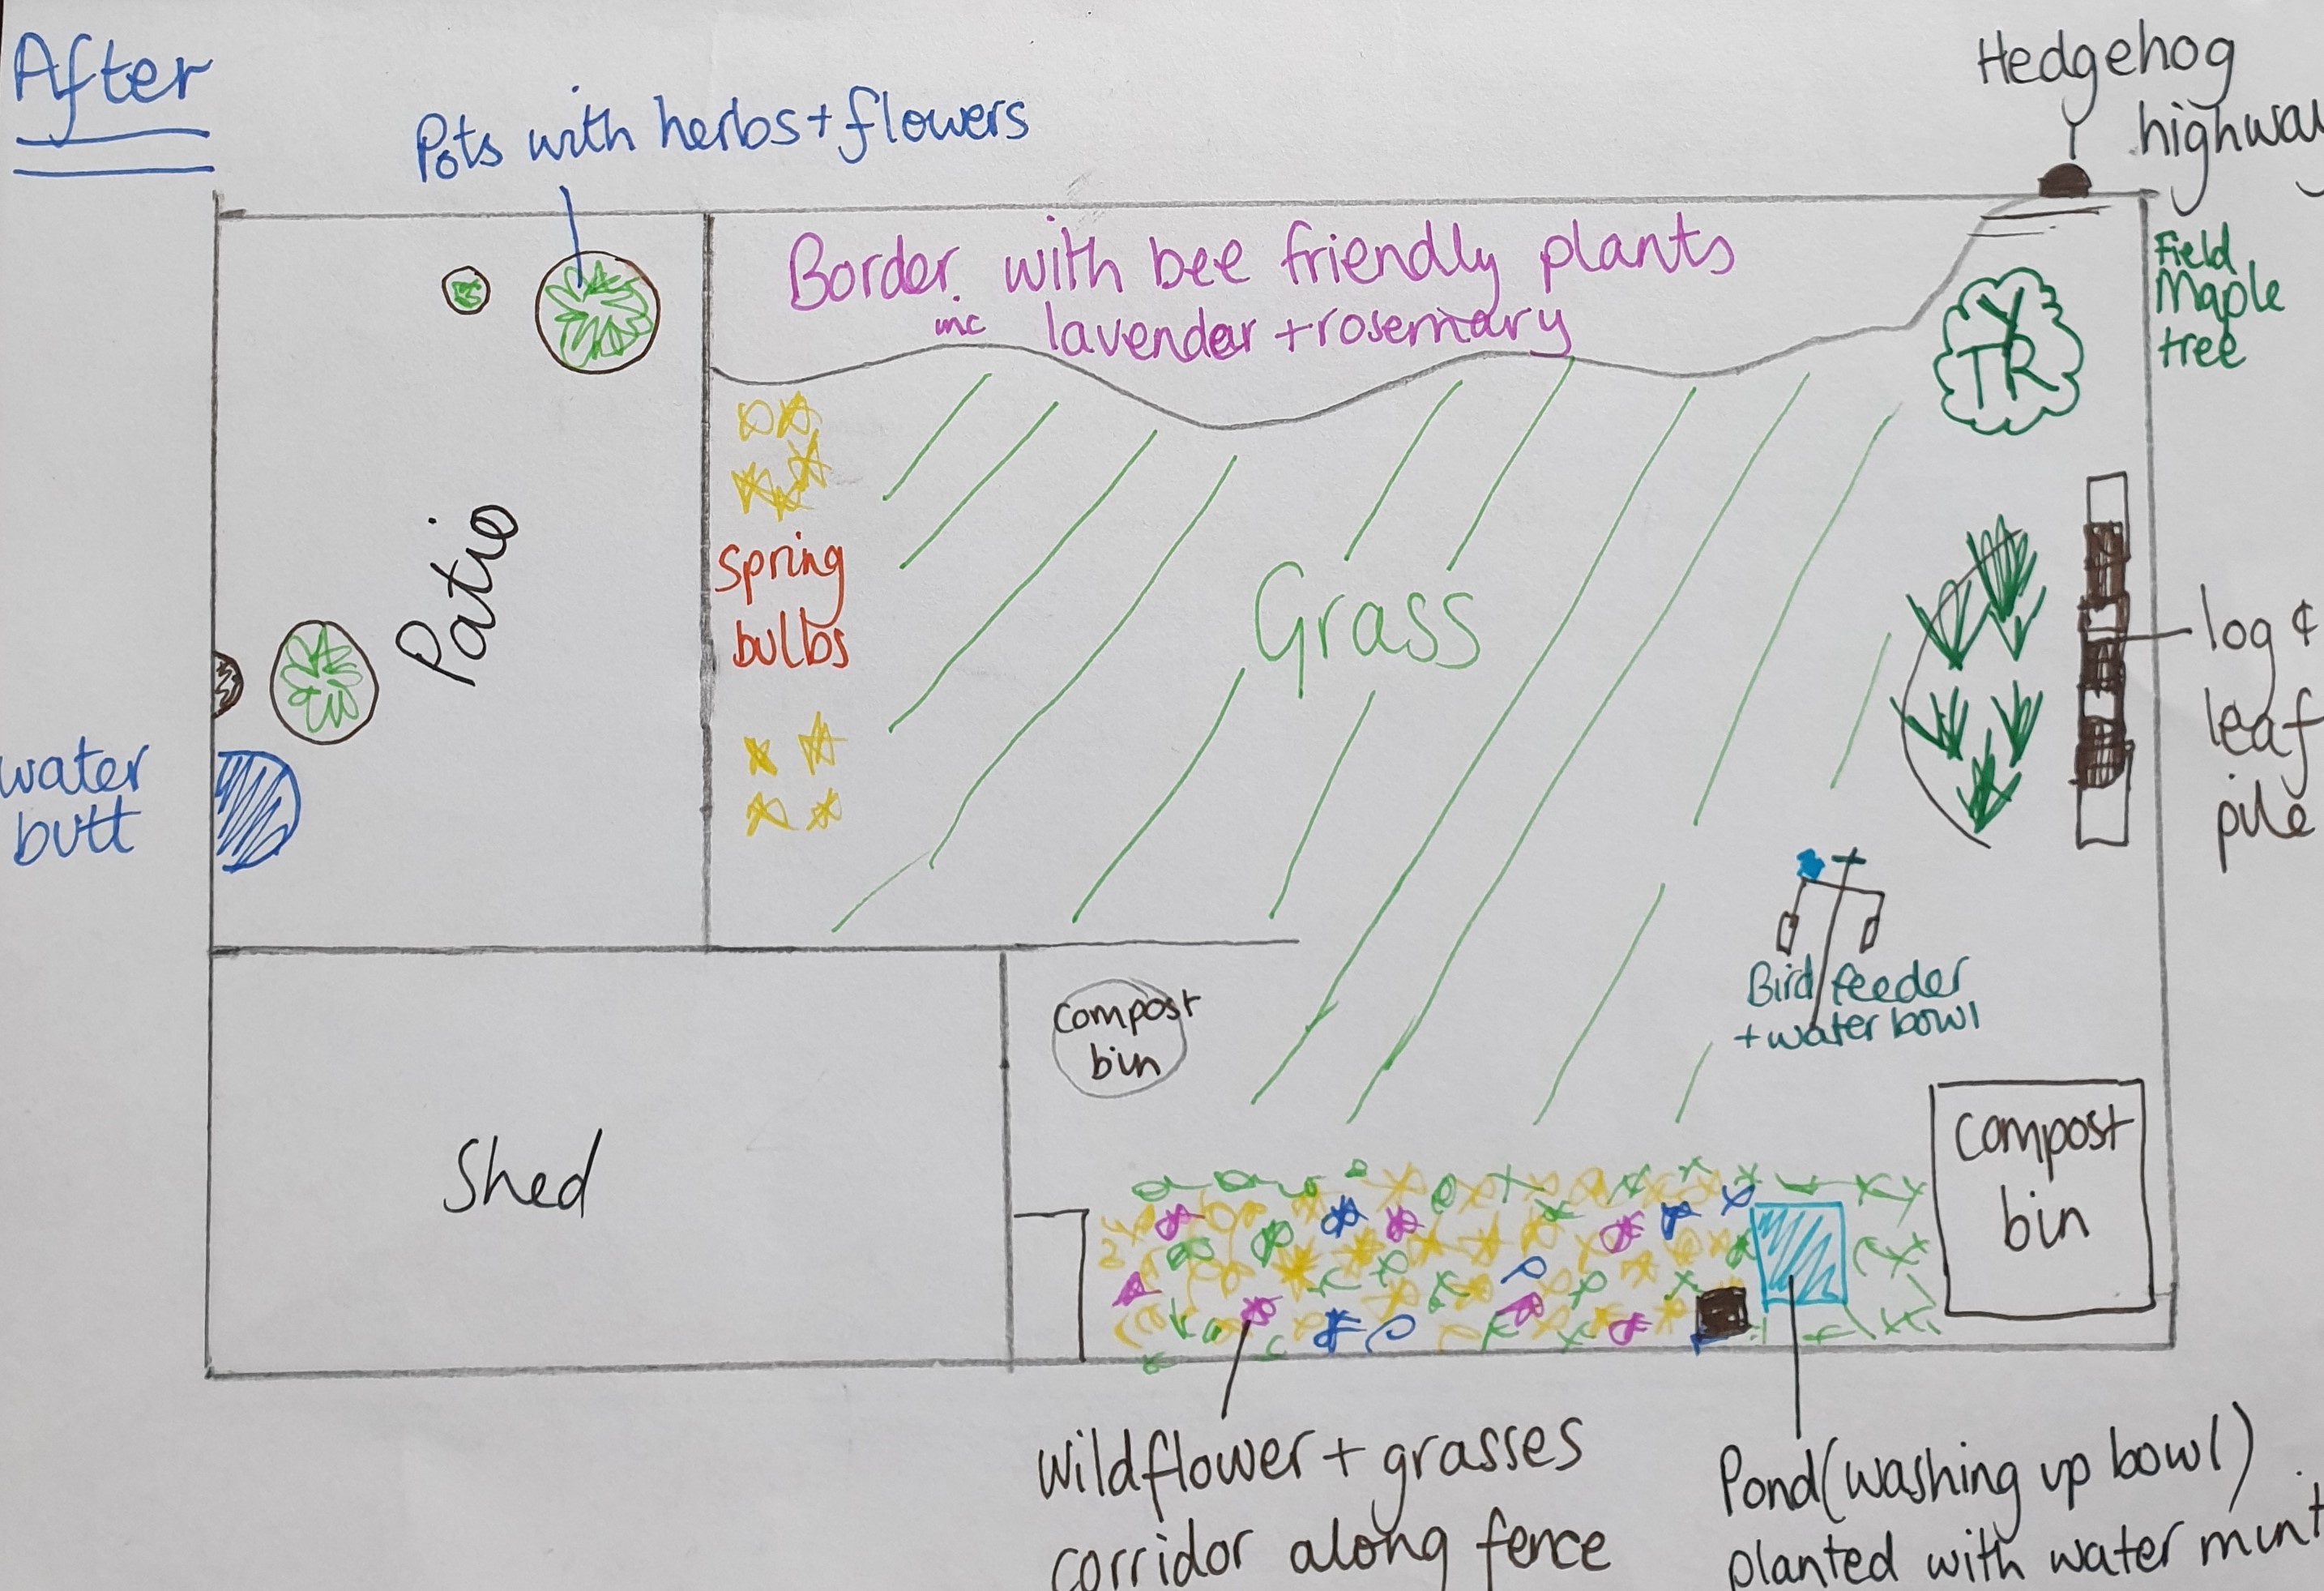 After
Pots with herbs + flowers
Hedgehog
highway
Border with bee friendly plants
inc lavender + rosemary
Field
Maple
tree
TR
Patio
Spring
bulbs
Grass
log &
leaf
pile
water
butt
Bird feeder
+ water bowl
compost
bin
Shed
compost
bin
Wildflower + grasses
corridor along fence
Pond (washing up bowl)
planted with water mint